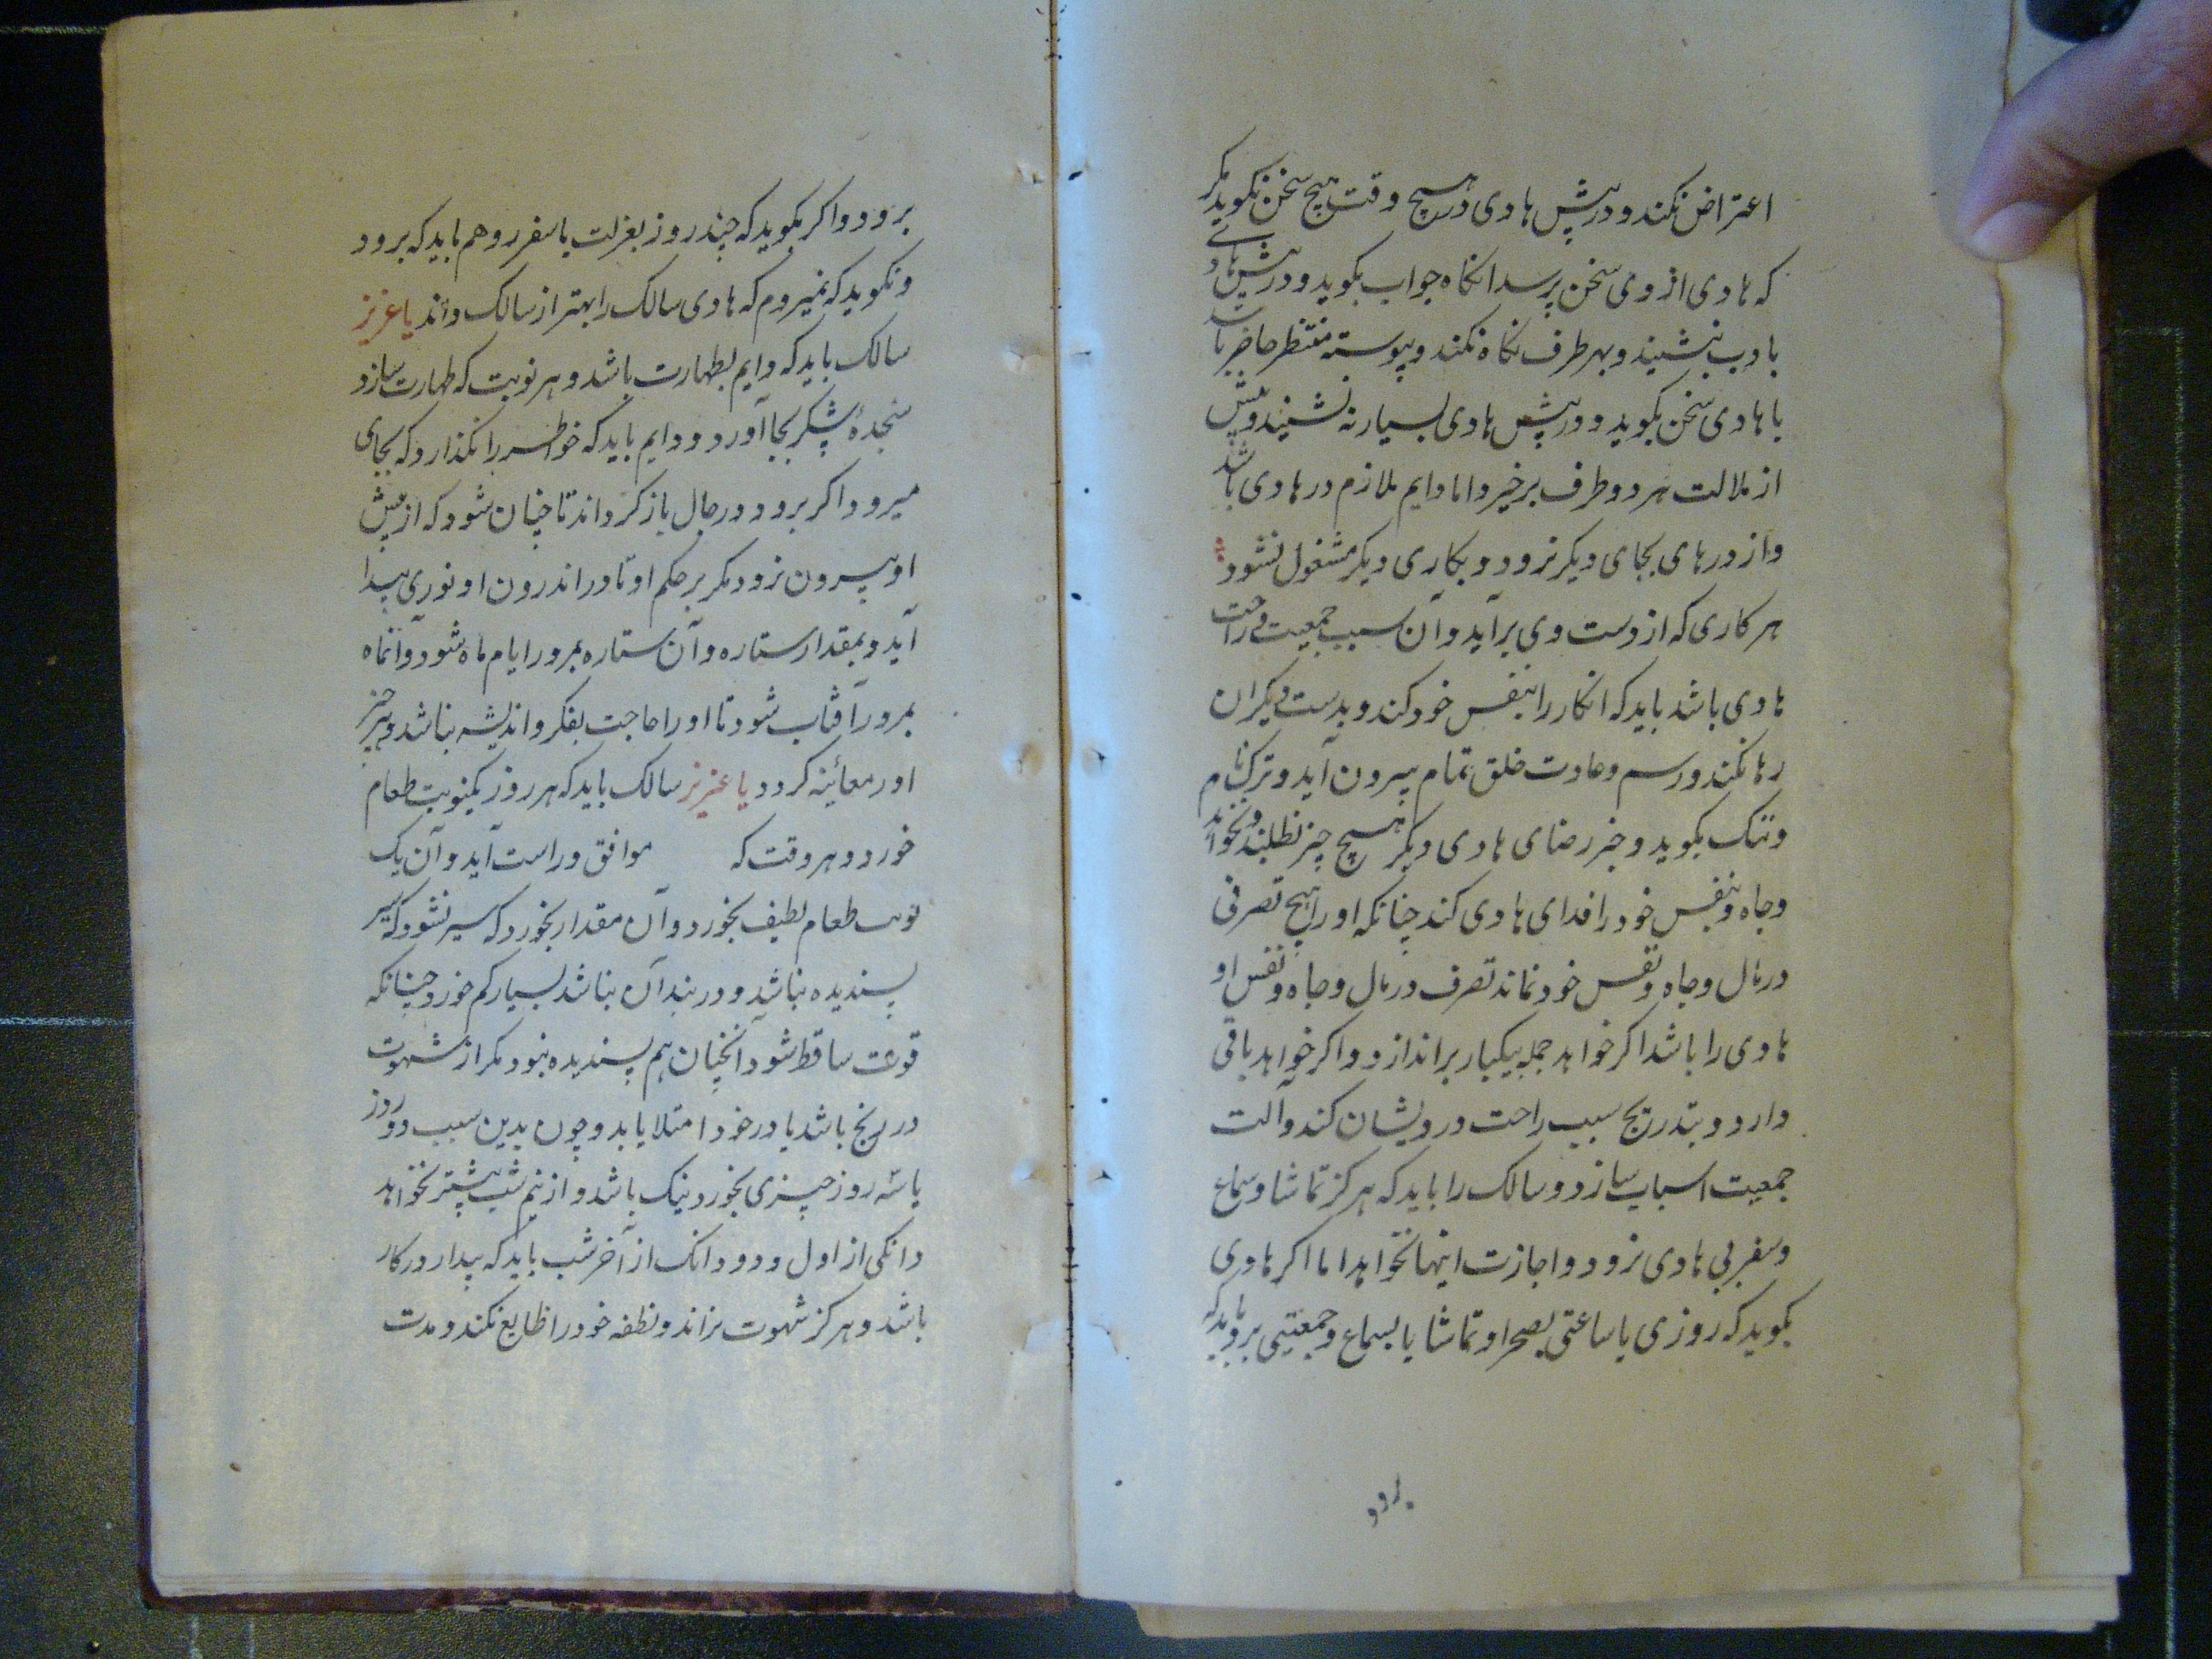 اعتراض نکند و در پیش هادی در هیچ وقت هیچ سخن نکوید مکر
که هادی از وی سخن پرسد انکاه جواب بکوید و در پیش هادی
بادب بنشیند و بهر طرف نکاه نکند و پیوسته منتظر حاضر باشد
با هادی سخن بکوید و در پیش هادی بسیار نه نشیند و پیش
از ملالت هر دو طرف برخیزد اما دایم ملازم در هادی باشد
و از در هادی بجای دیکر نرود و بکاری دیکر مشغول نشود
هر کاری که از دست وی برآید و آن سبب جمعیت و راحت
هادی باشد باید که انکار را بنفس خود کند و بدست دیکران
رها نکند و رسم و عادت خلق تمام بیرون آید و ترک نام
و ننک بکوید و جز رضای هادی دیکر هیچ چیز نطلبد و نخواهد
و جاه و نفس خود را فدای هادی کند چنانکه او را هیچ تصرفی
در مال و جاه و نفس خود نماند تصرف در مال و جاه و نفس او
هادی را باشد اکر خواهد جمله بیکبار براندازد و اکر خواهد باقی
دارد و بتدریج سبب راحت درویشان کند و آلت
جمعیت اسباب سازد و سالک را باید که هرکز تماشا و سماع
و سفر بی هادی نرود و اجازت اینها نخواهد اما اکر هادی
بکوید که روزی یا ساعتی بصحرا و تماشا یا بسماع و جمعیتی برو باید که
برود
برود و اکر بکوید که چند روز بعزلت یا سفر رو هم باید که برود
و نکوید که نمیروم که هادی سالک را بهتر از سالک داند یا عزیز
سالک باید که دایم بطهارت باشد و هر نوبت که طهارت سازد
سجدهٔ شکر بجا آورد و دایم باید که خواطر را نکذارد که بجای
میرود و اکر برود در حال باز کرداند تا چنان شود که از پیش
او بیرون نرود مکر بر حکم او تا در اندرون او نوری پیدا
آید و بمقدار ستاره و آن ستاره بمرور ایام ماه شود و آنماه
بمرور آفتاب شود تا او را حاجت بفکر و اندیشه نباشد و هر چیز
اورا معائنه کردد یا عزیز سالک باید که هر روز یکنوبت طعام
خورد و هر وقت که موافق و راست آید و آن یک
نوبت طعام لطیف بخورد و آن مقدار بخورد که سیر نشود که سیر
پسندیده نباشد و در بند آن نباشد بسیار کم خورد چنانکه
قوت ساقط شود آنچنان هم پسندیده نبود مکر از شهوت
در رنج باشد یا در خود امتلا یابد و چون بدین سبب دو روز
یا سه روز چیزی نخورد نیک باشد و از نیم شب بیشتر نخوابد
دانکی از اول و دو دانک از آخر شب باید که بیدار و در کار
باشد و هرکز شهوت نراند و نطفه خود را ظایع نکند و مدت